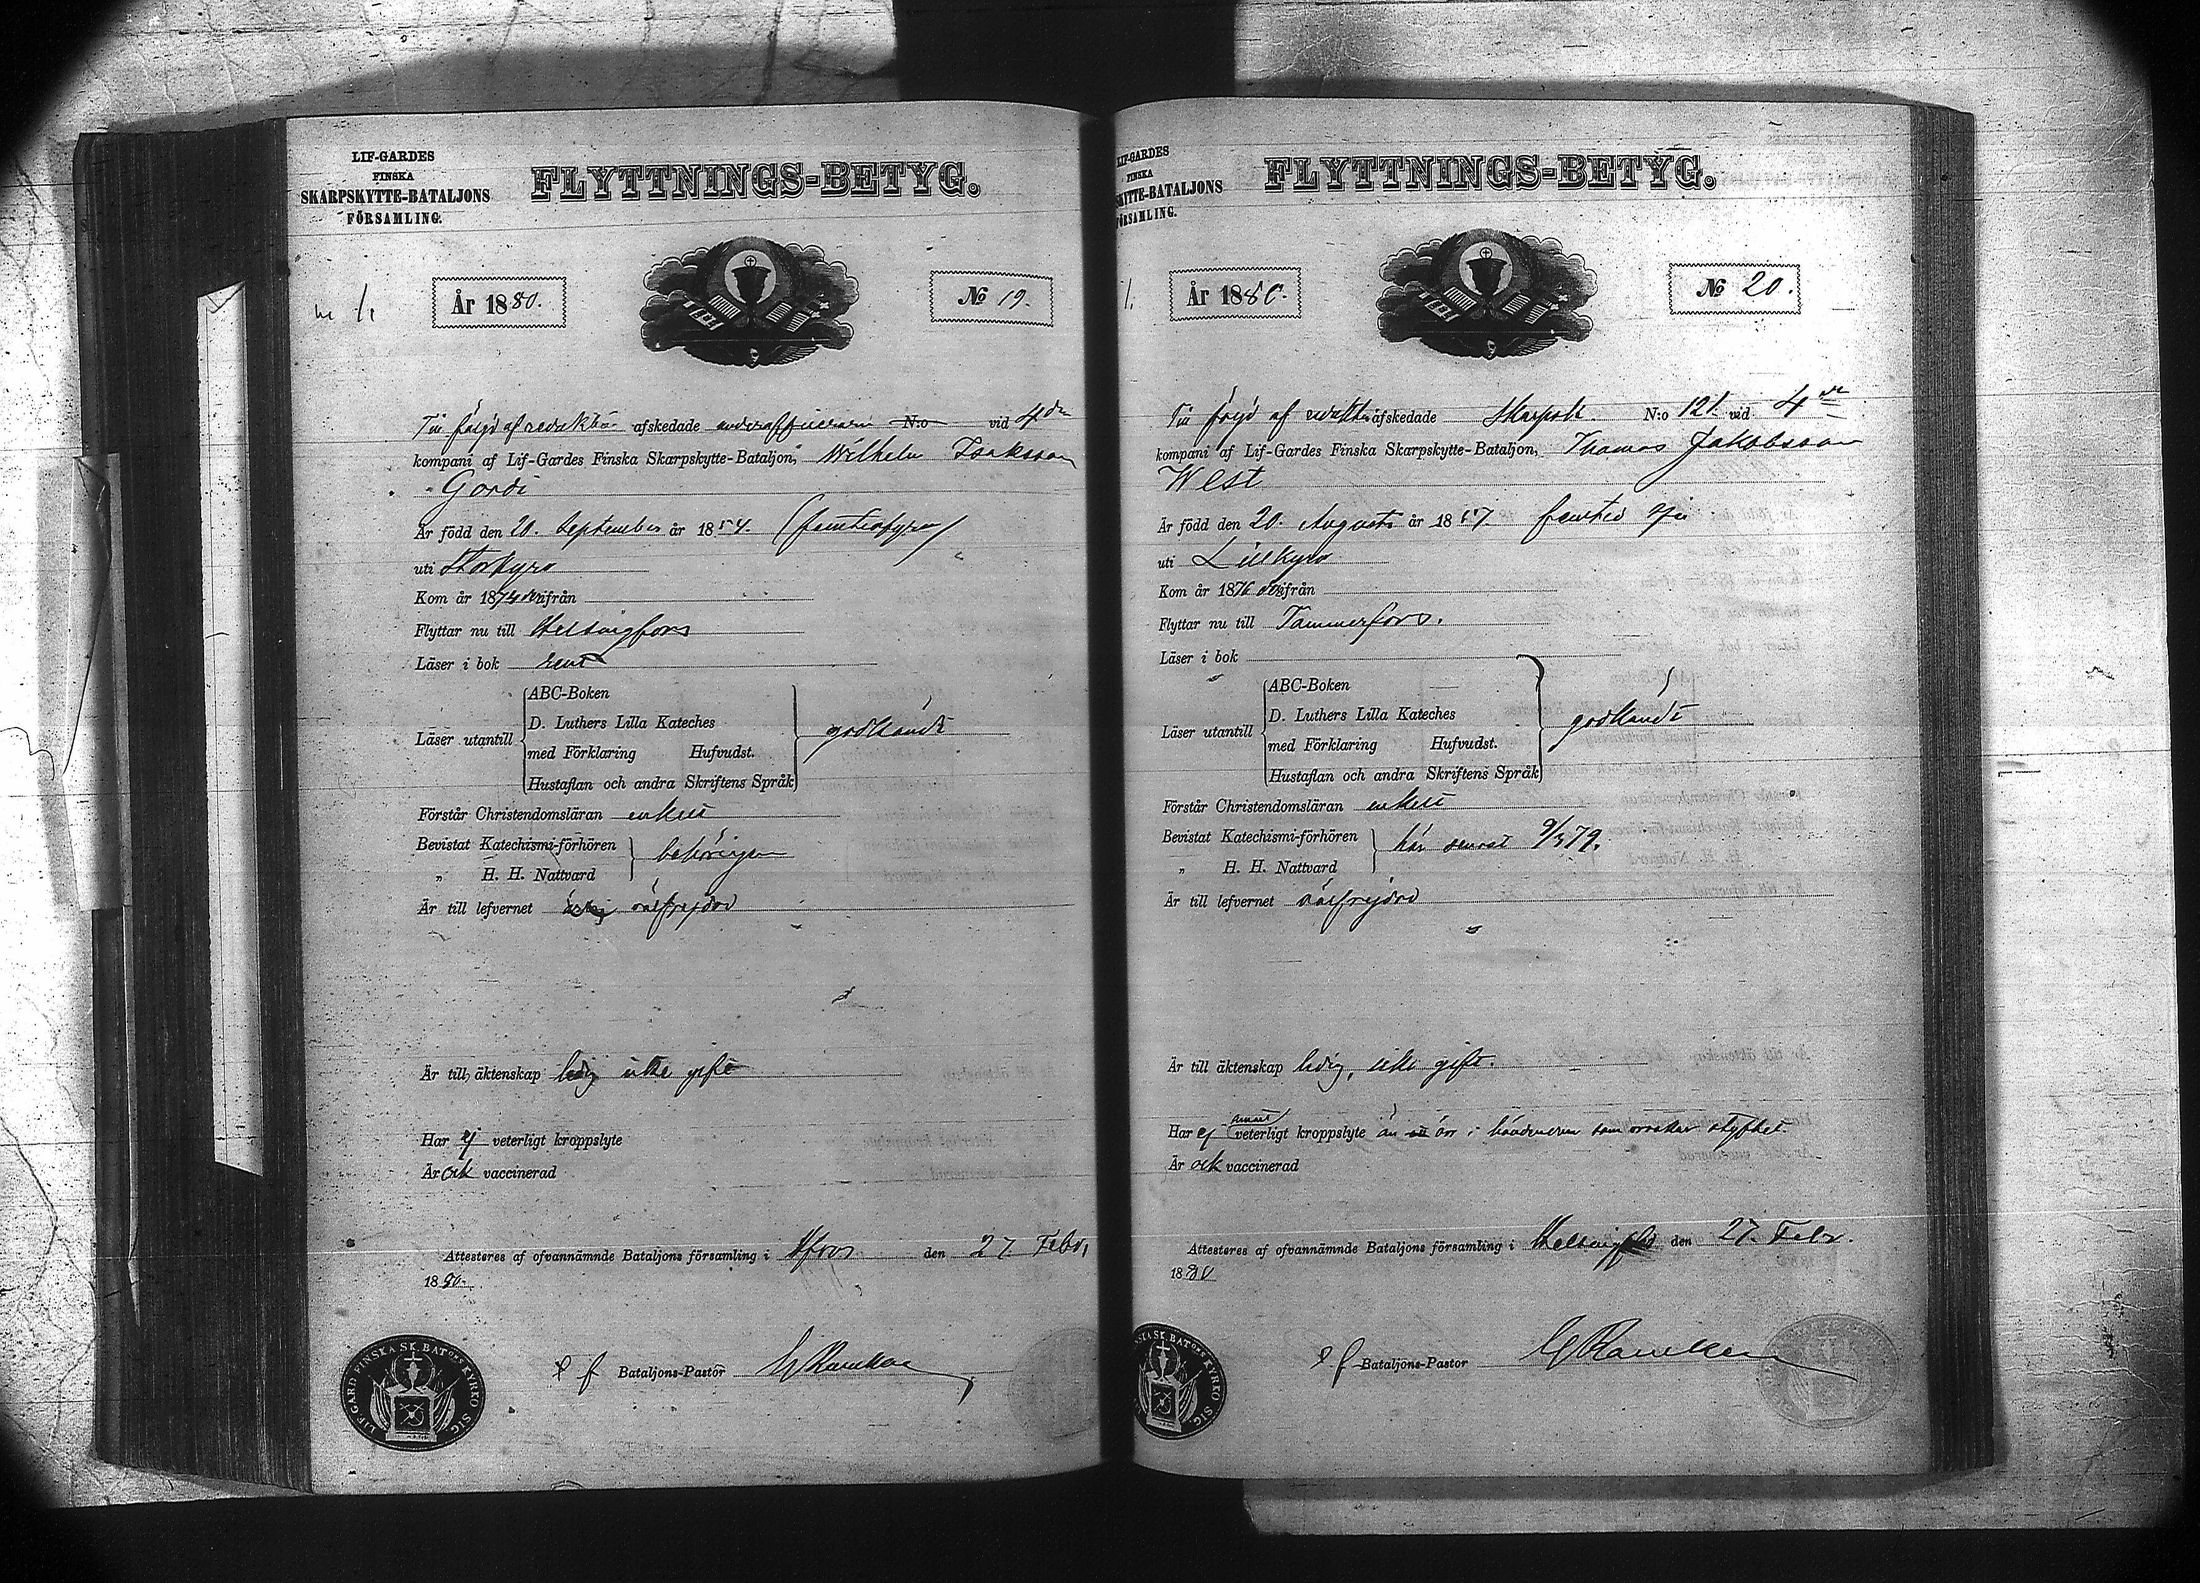 LIF-GARDES
FINSKA
SKARPSKYTTE-BATALJONS
FÖRSAMLING.
FLYTTNINGS-BETYG.
År 1880.
№ 19.
Till följd af afskedade underofficeren N:o vid 4de
kompani af Lif-Gardes Finska Skarpskytte-Bataljon, Wilhelm Isaksson
Gordi
Är född den 20. September år 1854. (femtiofyra)
uti Storkyro
Kom år 1874 ifrån
Flyttar nu till Helsingfors
Läser i bok rent
Läser utantill
ABC-Boken
D. Luthers Lilla Kateches
med Förklaring Hufvudst.
Hustaflan och andra Skriftens Språk
godkändt
Förstår Christendomsläran enkelt
Bevistat Katechismi-förhören
„ H. H. Nattvard
behörigen
Är till lefvernet välfrejdad
Är till äktenskap ledig icke gift
Har ej veterligt kroppslyte
Är ock vaccinerad
Attesteras af ofvannämnde Bataljons församling i Hfors den 27. Febr.
1880.
Bataljons-Pastor
LIF GARD FINSKA SK. BATONS KYRKO SIG.
LIF-GARDES
FINSKA
SKYTTE-BATALJONS
FÖRSAMLING.
FLYTTNINGS-BETYG.
År 1880.
№ 20.
Till följd af afskedade Skarpsk. N:o 121. vid 4de
kompani af Lif-Gardes Finska Skarpskytte-Bataljon, Thomas Jakobsson
West
Är född den 20. Augusti år 1857. femtio sju
uti Lillkyro
Kom år 1876 ifrån
Flyttar nu till Tammerfors.
Läser i bok
Läser utantill
ABC-Boken
D. Luthers Lilla Kateches
med Förklaring Hufvudst.
Hustaflan och andra Skriftens Språk
godkändt
Förstår Christendomsläran enkelt
Bevistat Katechismi-förhören
„ H. H. Nattvard
här senast 9/3 79.
Är till lefvernet välfrejdad
Är till äktenskap ledig, icke gift.
Har ej annat veterligt kroppslyte än ärr i
Är ock vaccinerad
Attesteras af ofvannämnde Bataljons församling i Helsingfors den 27. Febr.
1880
Bataljons-Pastor
FINSKA SK. BATONS KYRKO SIG.